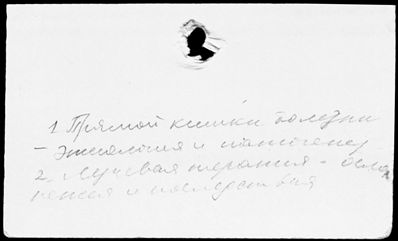 1 Прямой кишки болезни
- этиология и патогенез
2. Лучевая терапия - ослож
нения и последствия